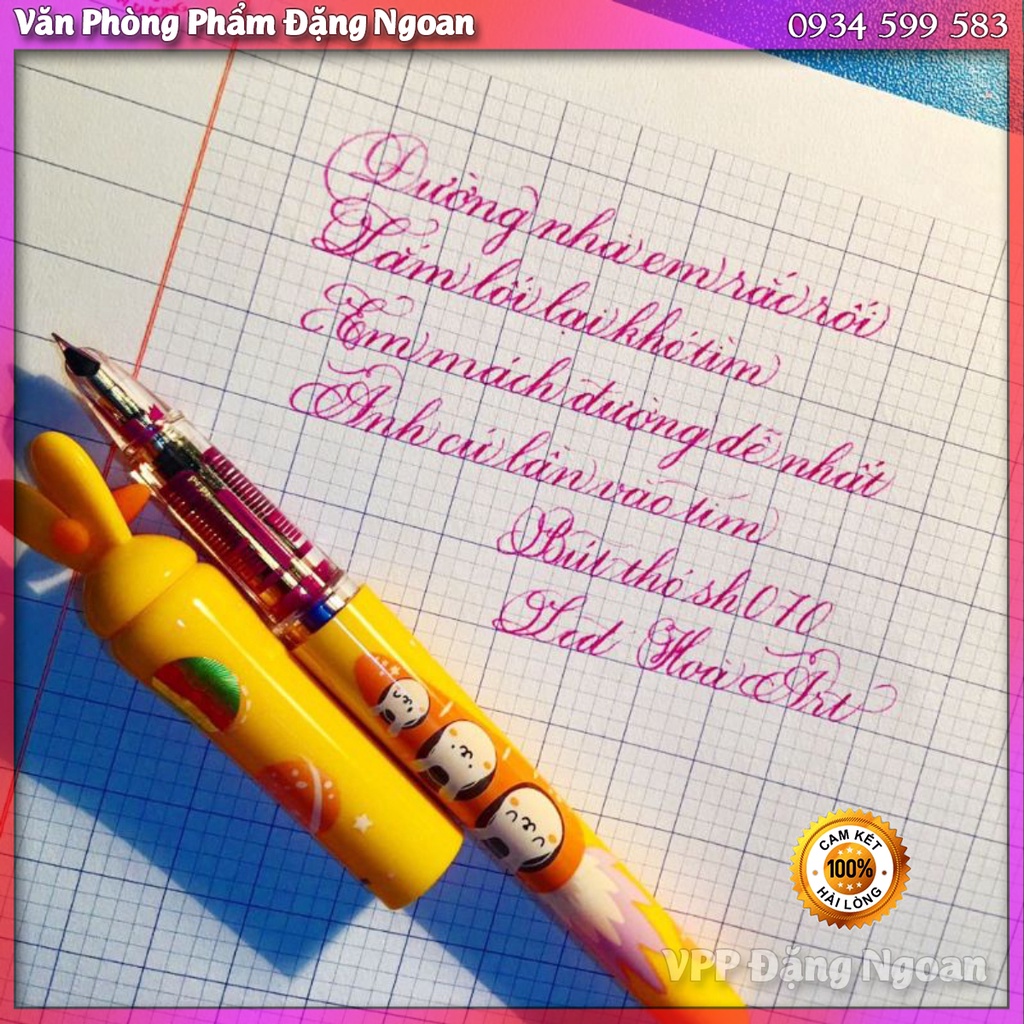 Văn Phòng Phẩm Đặng Ngoan
0934 599 583
Đường nhà em rắc rối
Lắm lối lại khó tìm
Em mách đường dễ nhất
Anh cứ lần vào tim
Bút thỏ sh070
Hoa Art
CAM KẾT
100%
HÀI LÒNG
VPP Đặng Ngoan